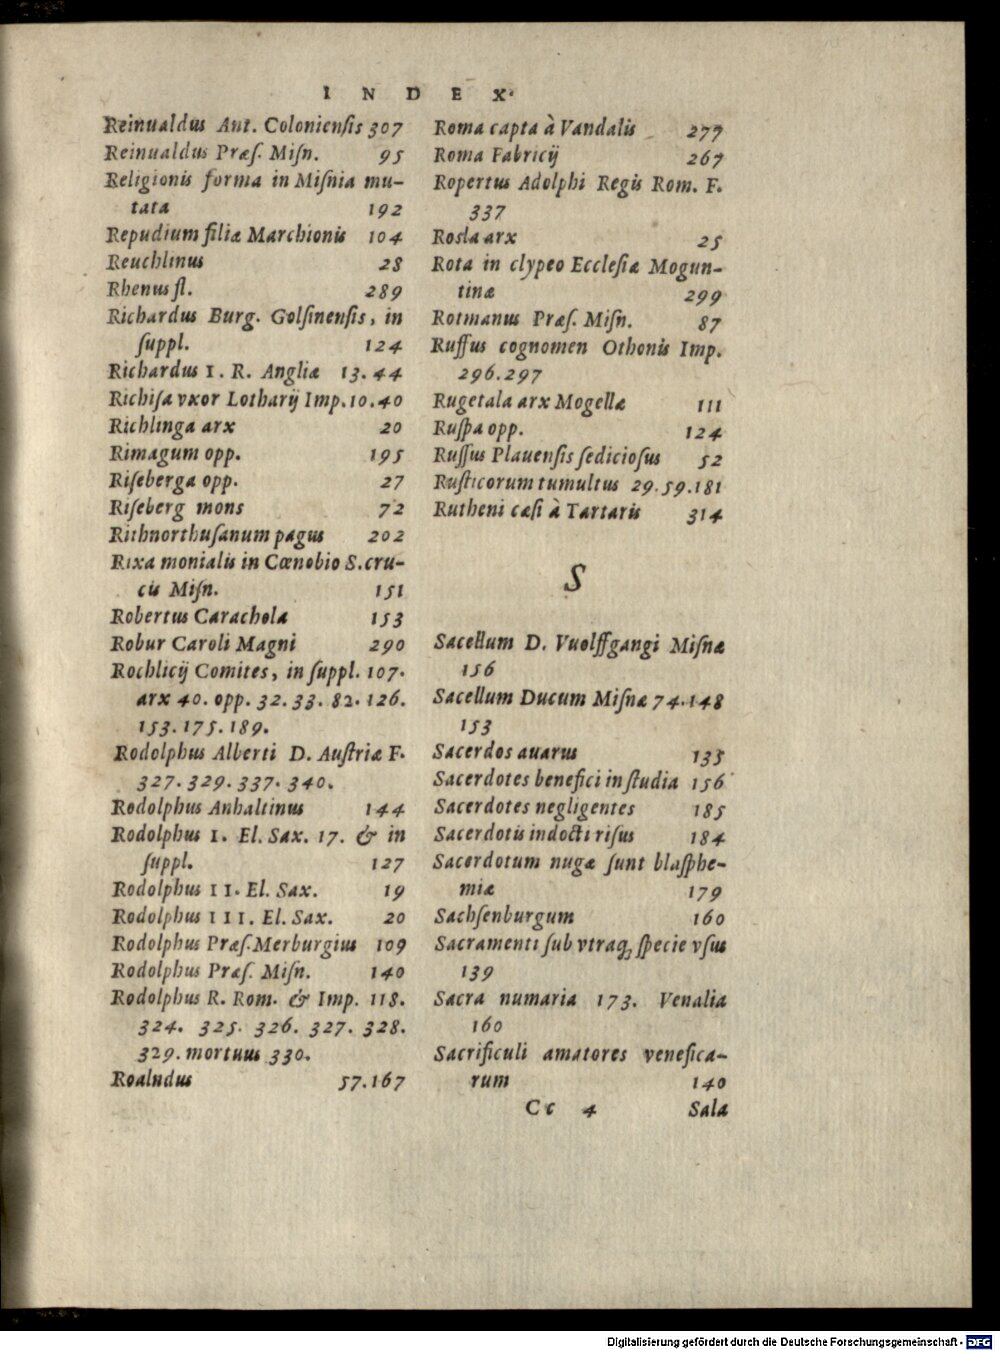 INDEX.
Reinualdus Ant. Colonienſis 307
Reinualdus Præſ. Miſn. 95
Religionis forma in Miſnia mu-
tata 192
Repudium filiæ Marchionis 104
Reuchlinus 28
Rhenus fl. 289
Richardus Burg. Golſinenſis, in
ſuppl. 124
Richardus I. R. Angliæ 13. 44
Richiſa vxor Lotharij Imp. 10. 40
Richlinga arx 20
Rimagum opp. 195
Riſeberga opp. 27
Riſeberg mons 72
Rithnorthuſanum pagus 202
Rixa monialis in Cœnobio S. cru-
cis Miſn. 151
Robertus Carachola 153
Robur Caroli Magni 290
Rochlicij Comites, in ſuppl. 107.
arx 40. opp. 32. 33. 82. 126.
153. 175. 189.
Rodolphus Alberti D. Auſtriæ F.
327. 329. 337. 340.
Rodolphus Anhaltinus 144
Rodolphus I. El. Sax. 17. & in
ſuppl. 127
Rodolphus II. El. Sax. 19
Rodolphus III. El. Sax. 20
Rodolphus Præſ. Merburgius 109
Rodolphus Præſ. Miſn. 140
Rodolphus R. Rom. & Imp. 118.
324. 325. 326. 327. 328.
329. mortuus 330.
Roalndus 57. 167
Roma capta à Vandalis 277
Roma Fabricij 267
Ropertus Adolphi Regis Rom. F.
337
Rosla arx 25
Rota in clypeo Eccleſiæ Mogun-
tinæ 299
Rotmanus Præſ. Miſn. 87
Ruffus cognomen Othonis Imp.
296. 297
Rugetala arx Mogellæ 111
Ruſpa opp. 124
Ruſſus Plauenſis ſedicioſus 52
Ruſticorum tumultus 29. 59. 181
Rutheni cæſi à Tartaris 314
S
Sacellum D. Vuolffgangi Miſnæ
156
Sacellum Ducum Miſnæ 74. 148
153
Sacerdos auarus 135
Sacerdotes benefici in ſtudia 156
Sacerdotes negligentes 185
Sacerdotis indocti riſus 184
Sacerdotum nugæ ſunt blaſphe-
miæ 179
Sachſenburgum 160
Sacramenti ſub vtraq; ſpecie vſus
139
Sacra numaria 173. Venalia
160
Sacrificuli amatores venefica-
rum 140
Cc 4 Sala
Digitalisierung gefördert durch die Deutsche Forschungsgemeinschaft - DFG